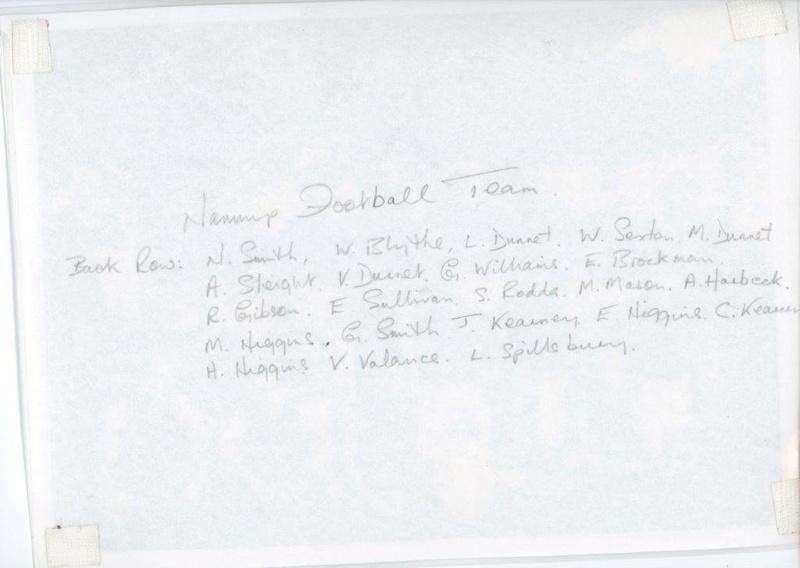 Nannup Football Team.
Back Row: N. Smith, W. Blythe, L. Dunnet. W. Sexton. M. Dunnet
A. Sleight. V. Dunnet. G. Williams. E. Brockman.
R. Gibson. E Sullivan. S. Rodda. M. Mason. A. Harbeck.
M. Higgins. G. Smith. J. Kearney E. Higgins. C. Kearney
H. Higgins V. Valance. L. Spillsbury.